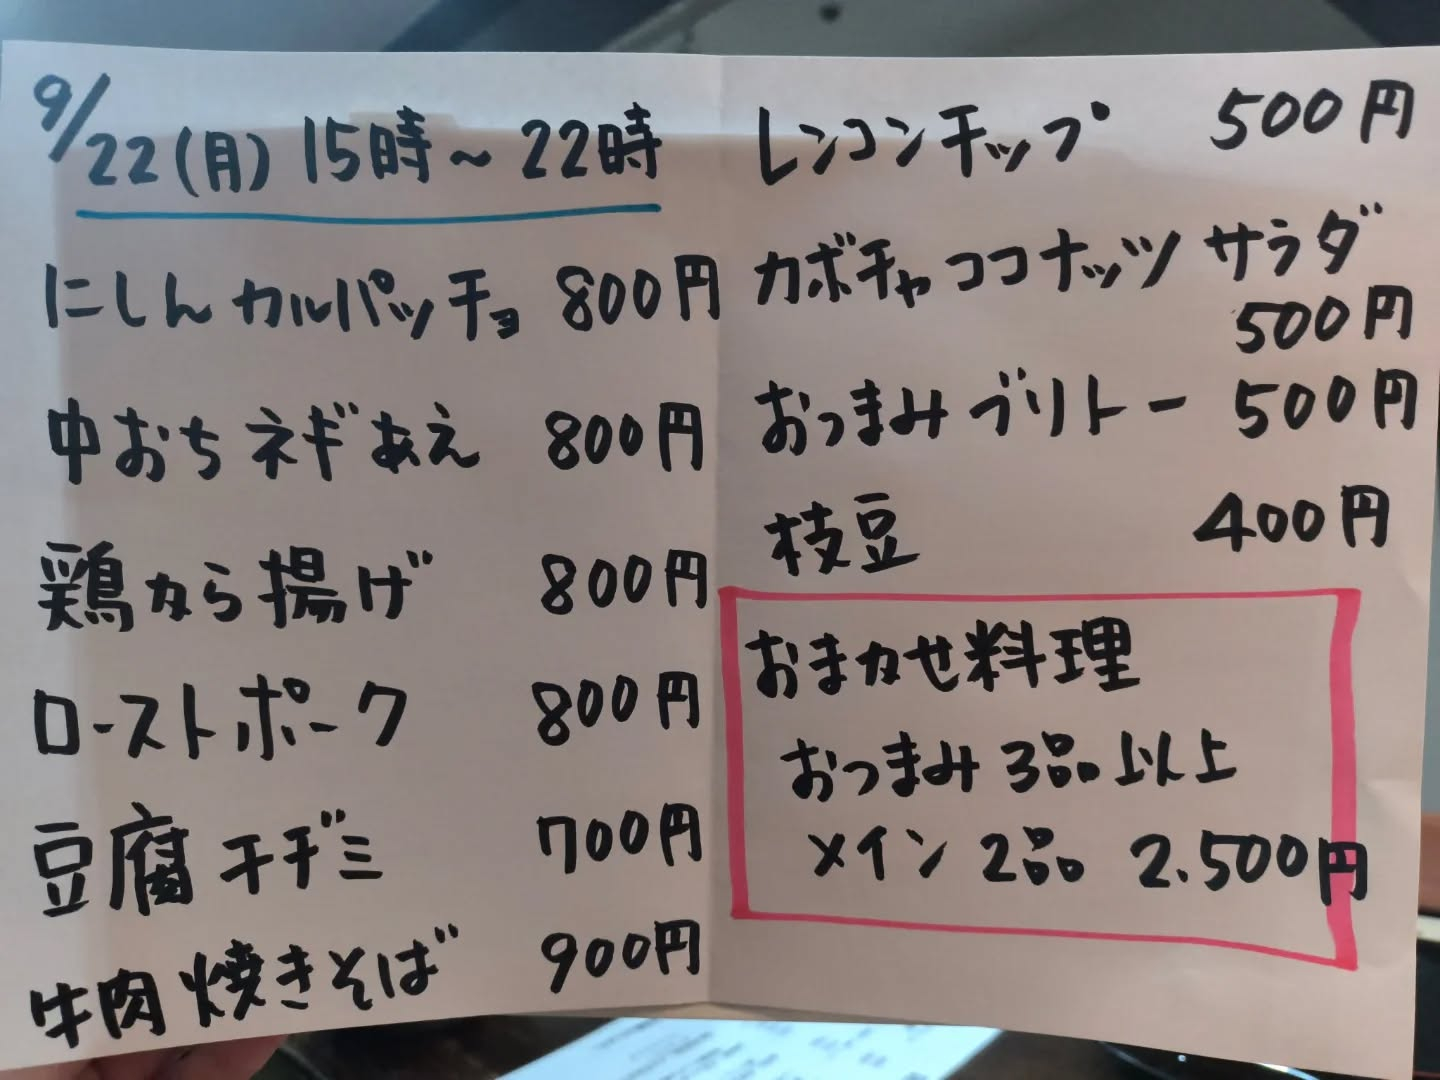 9/22(月) 15時～22時
にしんカルパッチョ 800円
中おちネギあえ 800円
鶏から揚げ 800円
ローストポーク 800円
豆腐チヂミ 700円
牛肉焼きそば 900円
レンコンチップ 500円
カボチャココナッツサラダ
500円
おつまみブリトー 500円
枝豆 400円
おまかせ料理
おつまみ3品以上
メイン2品 2.500円